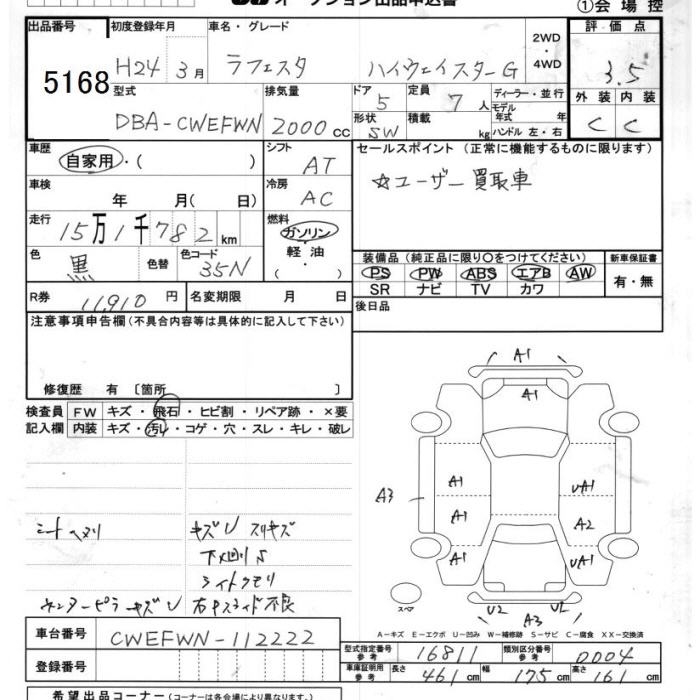 オークション出品申込書
①会場控
出品番号 5168
初度登録年月 H24 3月
車名・グレード ラフェスタ ハイウェイスターG
2WD・4WD
評価点 3.5
外装 C 内装 C
型式 DBA-CWEFWN
排気量 2000cc
ドア 5
形状 SW
定員 7人
積載 kg
ディーラー・並行
モデル年式 年
ハンドル 左・右
車歴 自家用・( )
シフト AT
セールスポイント (正常に機能するものに限ります)
☆ユーザー買取車
車検 年 月( 日)
冷房 AC
走行 15万1千782km
燃料 ガソリン・軽油 ( ・ )
色 黒 色替 色コード 35N
装備品(純正品に限り○をつけてください)
PS PW ABS エアB AW
SR ナビ TV カワ
新車保証書 有・無
R券 11,910円
名変期限 月 日
後日品
注意事項申告欄(不具合内容等は具体的に記入して下さい)
修復歴 有 〔箇所 〕
検査員記入欄
FW キズ・飛石・ヒビ割・リペア跡・×要
内装 キズ・汚レ・コゲ・穴・スレ・キレ・破レ
シートヘタリ
キズU スリキズ
下メ回りS
ライトクモリ
センターピラーキズU
右Pスライド不良
A1
A1
A1 UA1
A3
A1 A2
A1 UA1
スペア
U2 U2
A3
A-キズ E-エクボ U-凹み W-補修跡 S-サビ C-腐食 XX-交換済
車台番号 CWEFWN-112222
登録番号
型式指定番号 参考 16811
類別区分番号 参考 0004
車庫証明用 参考 長さ 461cm 幅 175cm 高さ 161cm
希望出品コーナー(コーナーは各会場により異なります。)